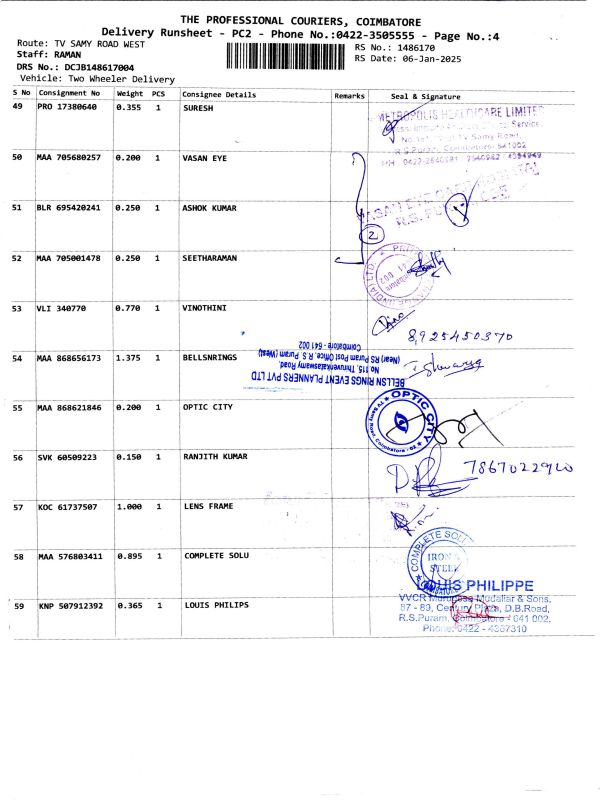 THE PROFESSIONAL COURIERS, COIMBATORE
Delivery Runsheet - PC2 - Phone No.:0422-3505555 - Page No.:4
Route: TV SAMY ROAD WEST
Staff: RAMAN
DRS No.: DCJB148617004
Vehicle: Two Wheeler Delivery
RS No.: 1486170
RS Date: 06-Jan-2025
S No Consignment No Weight PCS Consignee Details Remarks Seal & Signature
49 PRO 17380640 0.355 1 SURESH
METROPOLIS HEALTHCARE LIMITED
R.S.Puram, Coimbatore- 641002
50 MAA 705680257 0.200 1 VASAN EYE
VASAN EYE CARE HOSPITAL
51 BLR 695420241 0.250 1 ASHOK KUMAR
2
52 MAA 705001478 0.250 1 SEETHARAMAN
53 VLI 340770 0.770 1 VINOTHINI
8925450370
54 MAA 868656173 1.375 1 BELLSNRINGS
BELLSN RINGS EVENT PLANNERS PVT LTD
No 115, Thiruvenkataswamy Road
(Near) RS Puram Post Office, R.S. Puram (West)
Coimbatore - 641 002
55 MAA 868621846 0.200 1 OPTIC CITY
OPTIC CITY
TV Samy Road, Coimbatore - 02
56 SVK 60509223 0.150 1 RANJITH KUMAR
7867022920
57 KOC 61737507 1.000 1 LENS FRAME
58 MAA 576803411 0.895 1 COMPLETE SOLU
COMPLETE SOLU
IRON &
STEEL
59 KNP 507912392 0.365 1 LOUIS PHILIPS
LOUIS PHILIPPE
VVCR Murugesa Mudaliar & Sons,
87 - 89, Century Plaza, D.B.Road,
R.S.Puram, Coimbatore - 641 002.
Phone: 0422 - 4367310